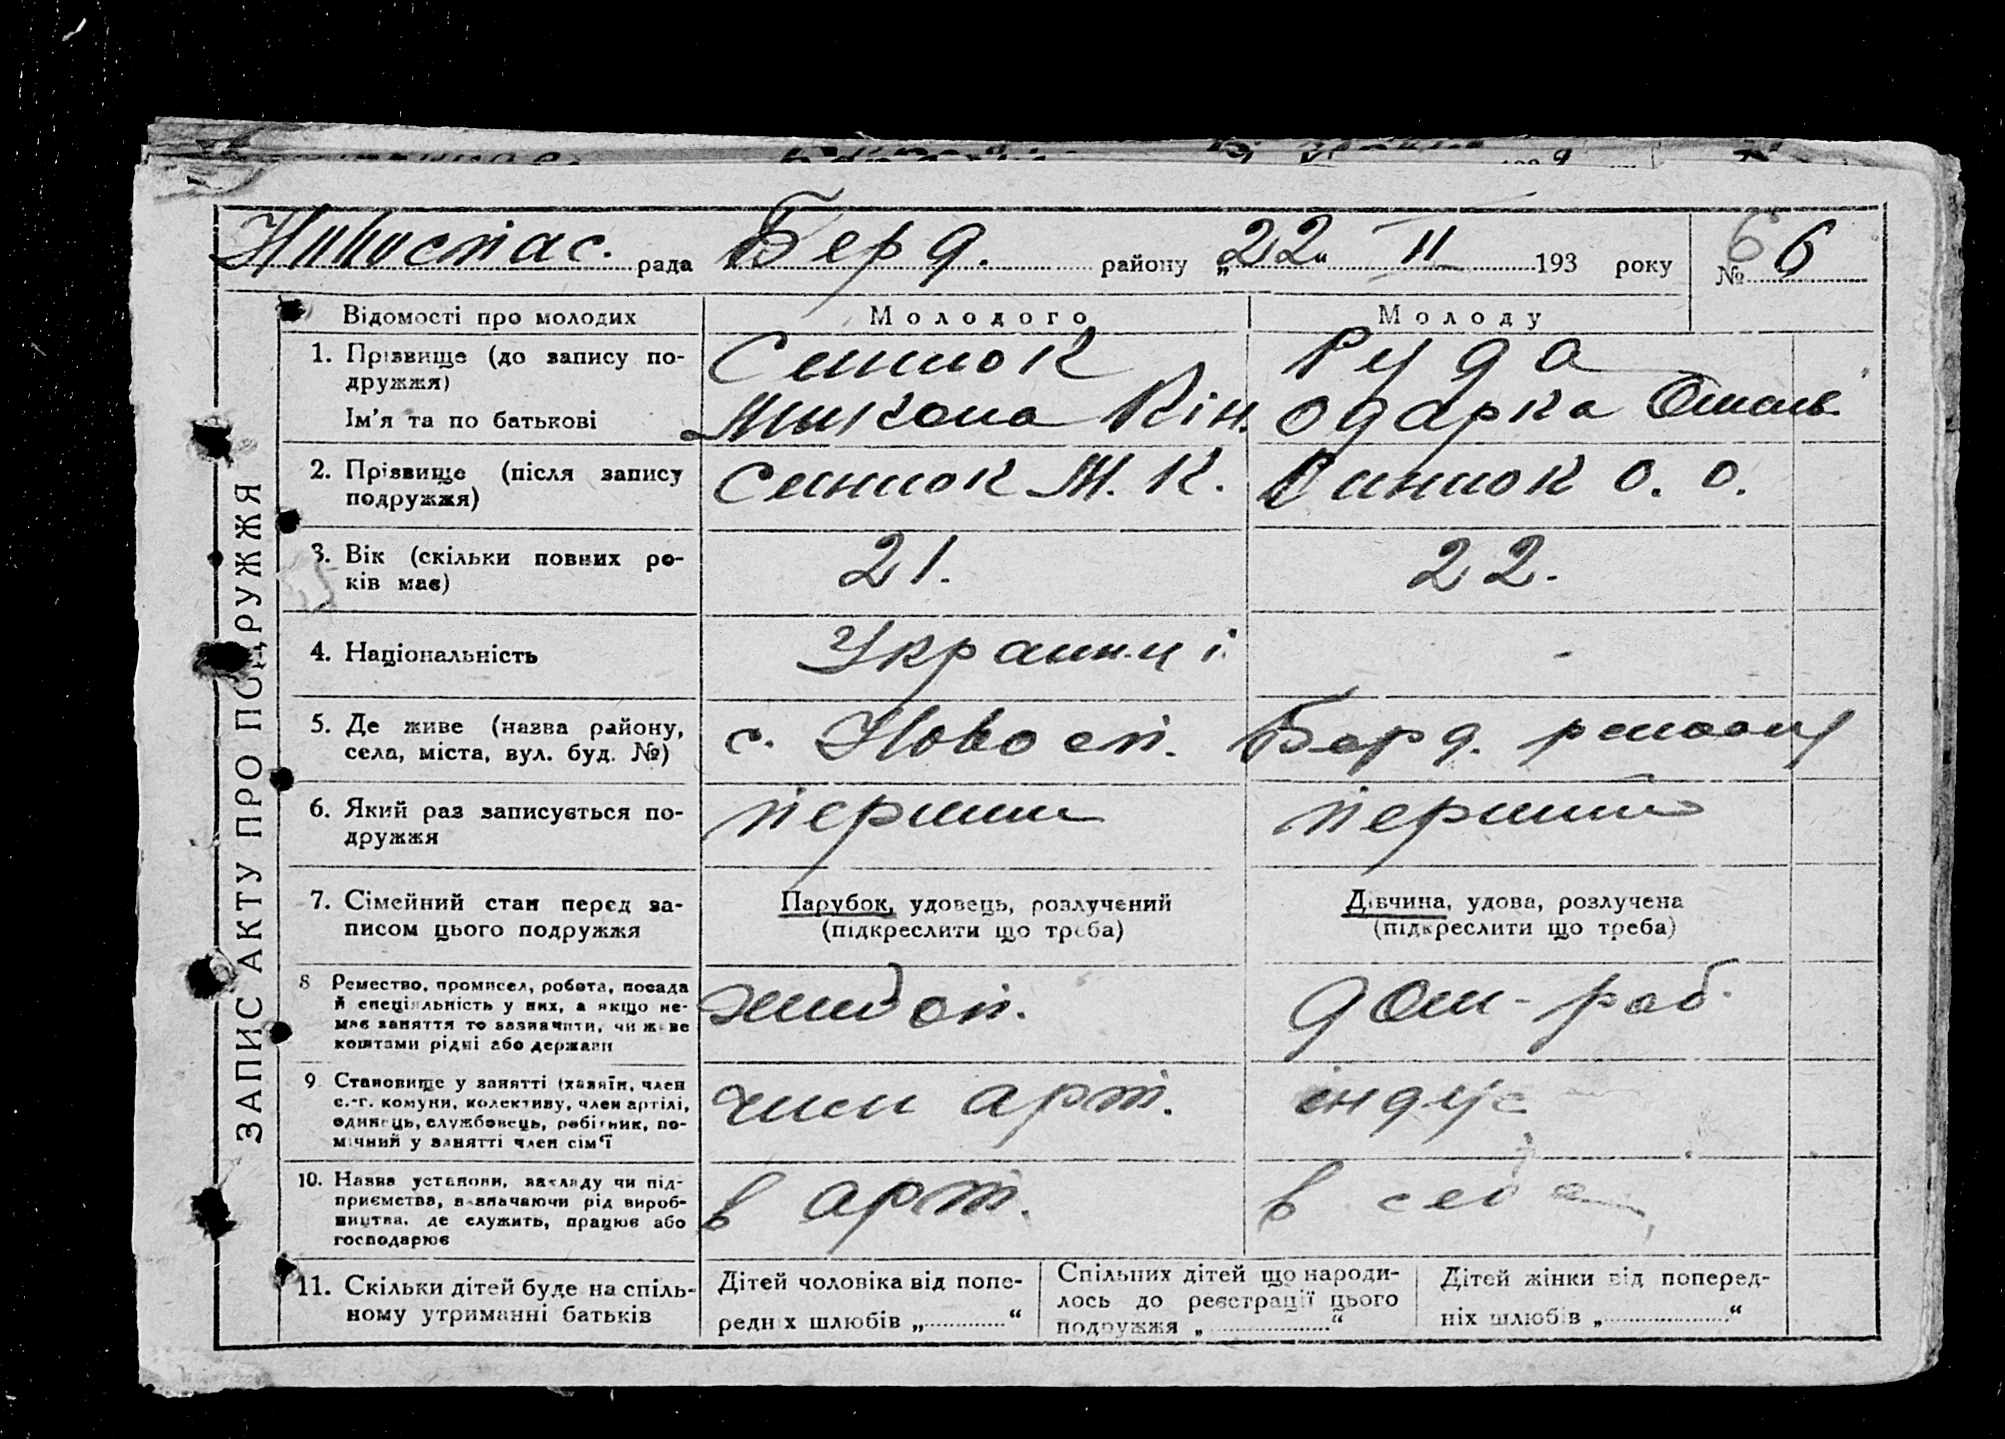 Новоспас. рада Берд. району „22“ II 193 року № 6 6
ЗАПИС АКТУ ПРО ПОДРУЖЖЯ
Відомості про молодих Молодого Молоду
1. Прізвище (до запису по-
дружжя) Руда
Ім'я та по батькові Микола Кін. Одарка Омел.
2. Прізвище (після запису
подружжя) М. К. О. О.
3. Вік (скільки повних ро-
ків має) 21. 22.
4. Національність Украинці -
5. Де живе (назва району,
села, міста, вул. буд. №) с. Новосп. Берд. району
6. Який раз записується по-
дружжя перший перший
7. Сімейний стан перед за-
писом цього подружжя
Парубок, удовець, розлучений
(підкреслити що треба)
Дівчина, удова, розлучена
(підкреслити що треба)
8 Ремество, промисел, робота, посада
й спеціяльність у них, а якщо не-
має заняття то зазначити, чи живе
коштами рідні або держави
дом-раб.
9 Становище у занятті (хазяїн, член
с.-г. комуни, колективу, член артілі,
одинець, службовець, робітник, по-
мічний у занятті член сім'ї
член арт. індус
10. Назва установи, закладу чи під-
приємства, взначаючи рід вироб-
ництва, де служить, працює або
господарює
в арт. в себе
11. Скільки дітей буде на спіль-
ному утриманні батьків
Дітей чоловіка від попе-
редніх шлюбів „ “
Спільних дітей що народи-
лось до реєстрації цього
подружжя „ “
Дітей жінки від поперед-
ніх шлюбів „ “